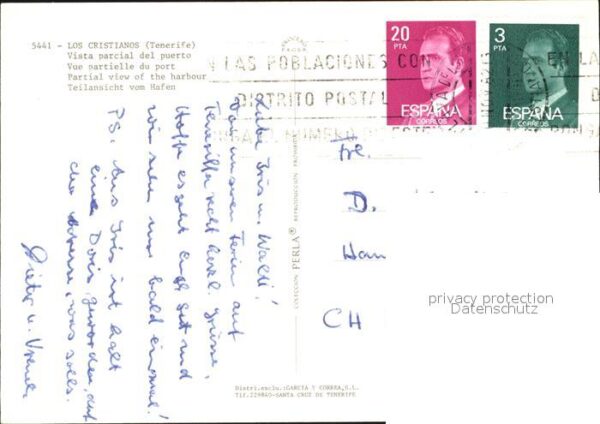 5441 - LOS CRISTIANOS (Tenerife)
Vista parcial del puerto
Vue partielle du port
Partial view of the harbour
Teilansicht vom Hafen
20
PTA
ESPAÑA
CORREOS
3
PTA
ESPAÑA
CORREOS
N LAS POBLACIONES CON
DISTRITO POSTAL
EN LA
Liebe Iris u. Walti!
Von unseren Ferien auf
Teneriffa recht herzl. Grüsse.
Hoffe es geht euch gut und
wir sehen uns bald einmal!
PS: Aus Iris ist halt
eine Doris geworden, auf
was solls.
Dieter u. Vreneli
COLECCION PERLA® REPRODUCCION PROHIBIDA
Frl.
D.
CH
privacy protection
Datenschutz
Distri.exclu.:GARCIA Y CORREA,S.L.
Tlf.229840-SANTA CRUZ DE TENERIFE